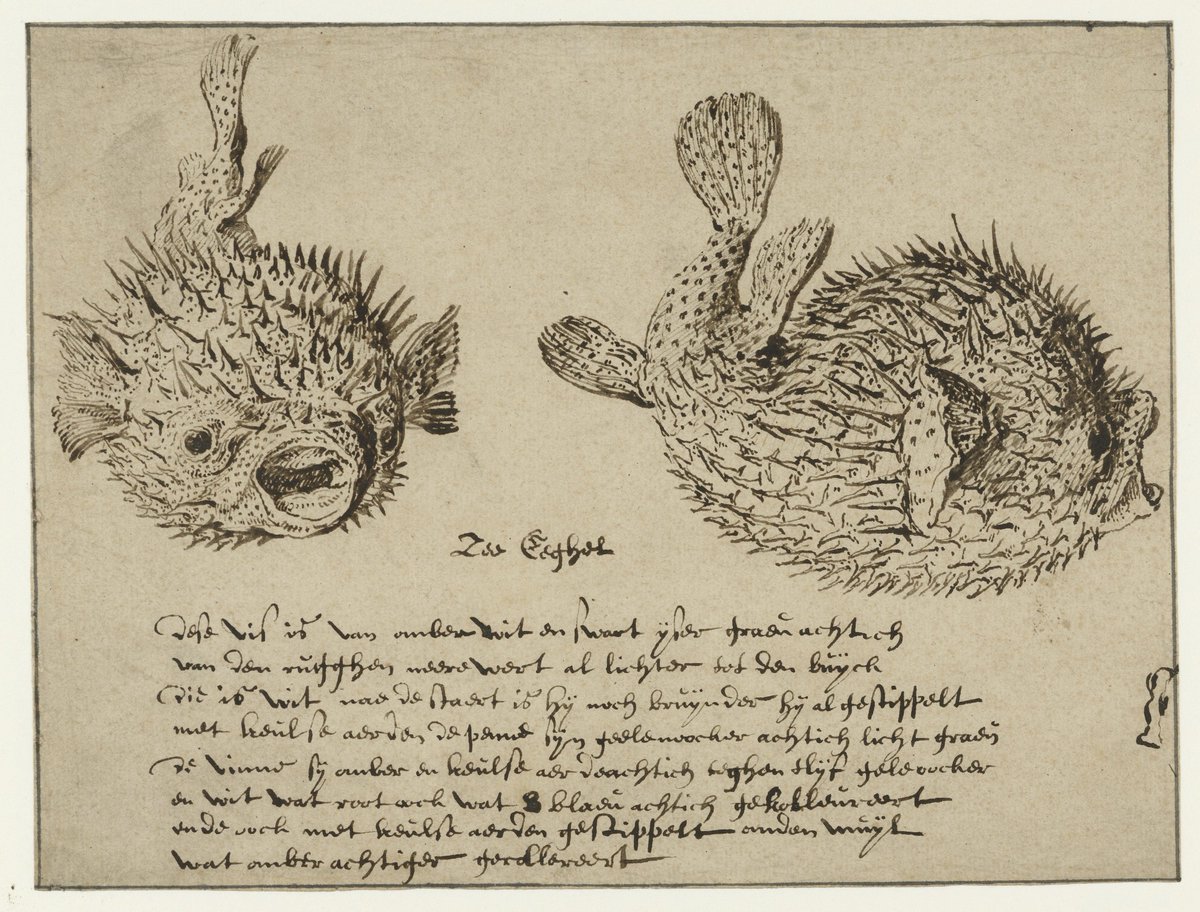 Zee Eeghel
Dese vis is van omber wit en swart yser graeuachtich
van den rugghen neerewert al lichter tot den buyck
die is wit nae de staert is hy noch bruynder hy al gestippelt
met keulse aerden de penne syn geelenoocker achtich licht graeu
de vinne sy omber en keulse aerdeachtich teghen tlyf geleoocker
en wit wat root oock wat blaeuachtich gekolleureert
ende oock met keulse aerden gestippelt anden muyl
wat omberachtiger